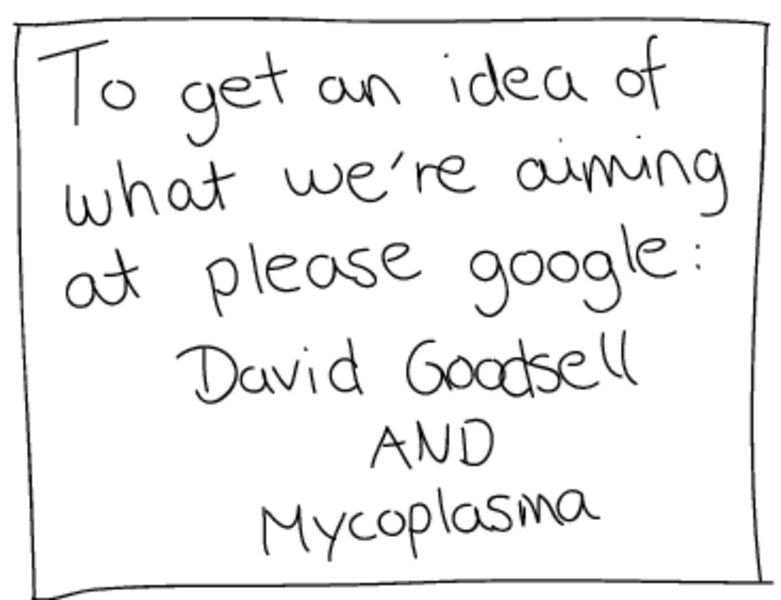 To get an idea of
what we're aiming
at please google:
David Goodsell
AND
Mycoplasma